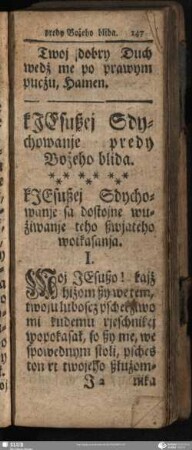 predy Božeho blida. 147
Twoj dobry Duch
wedź me po prawym
puczu, Hamen.
kJEsußej Sdy-
chowanje predy
Božeho blida.
kJEsußej Sdycho-
wanje sa dostojne wu-
žiwanje teho ßwjateho
wotkasanja.
I.
Moj JEsußo! kajž
hižom ßy we tem,
twoju luboscz pschecziwo
mi kudemu rjeschnikej
wopokasał, so ßy me, we
spowednym stoli, psches
ton rt twojeho ßłužom-
J 2 nika